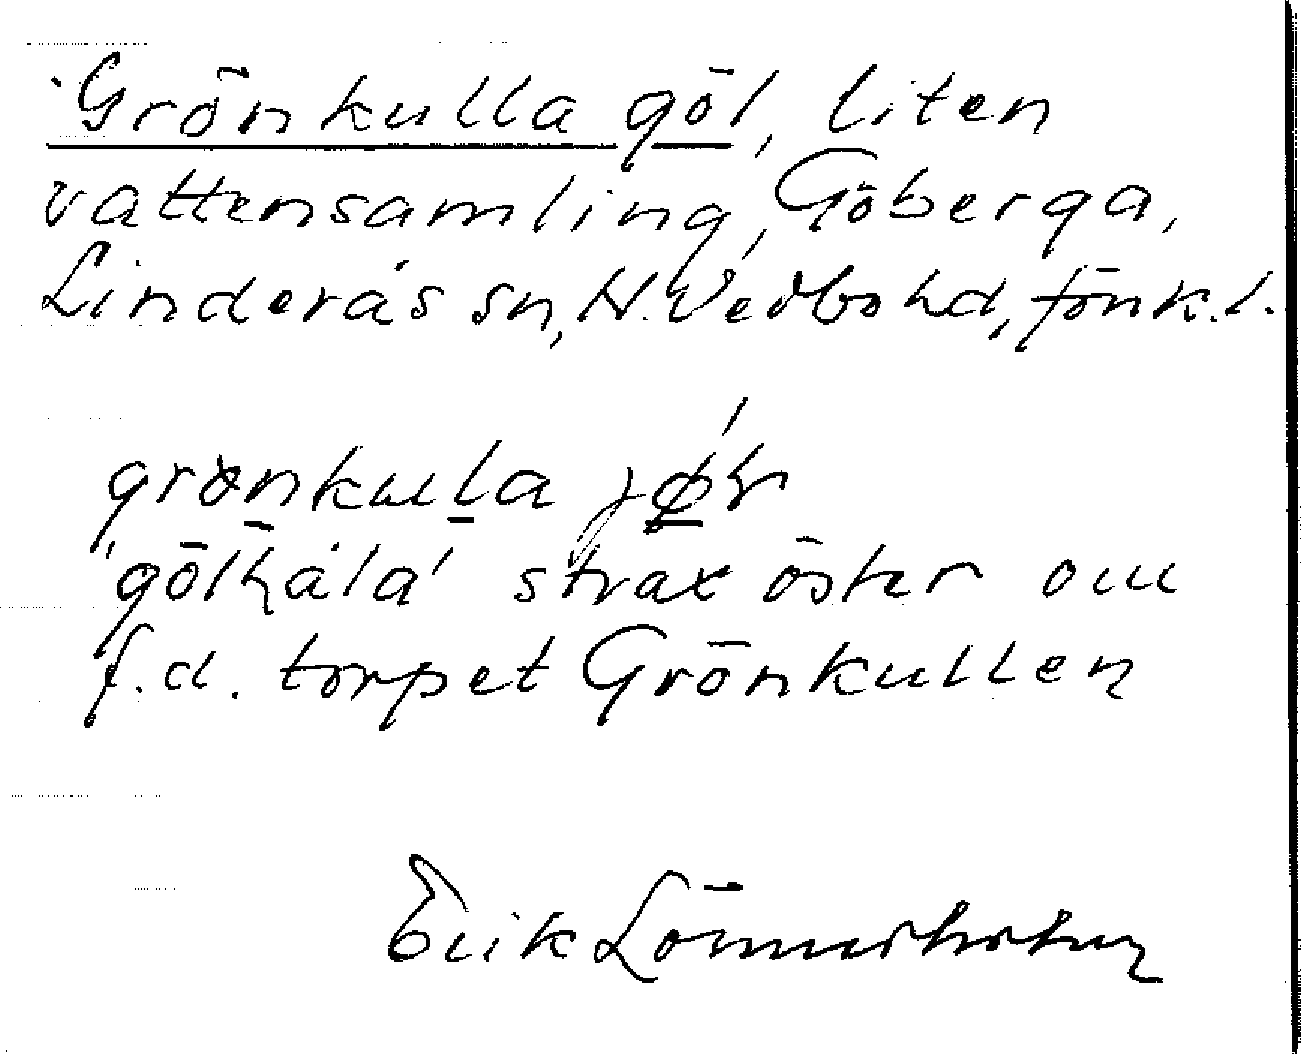 Grönkulla göl, liten
vattensamling, Göberga,
Linderås sn, N. Vedbo hd, Jönk. l.
grönkulla
'gölhåla' strax öster om
f.d. torpet Grönkullen
Erik